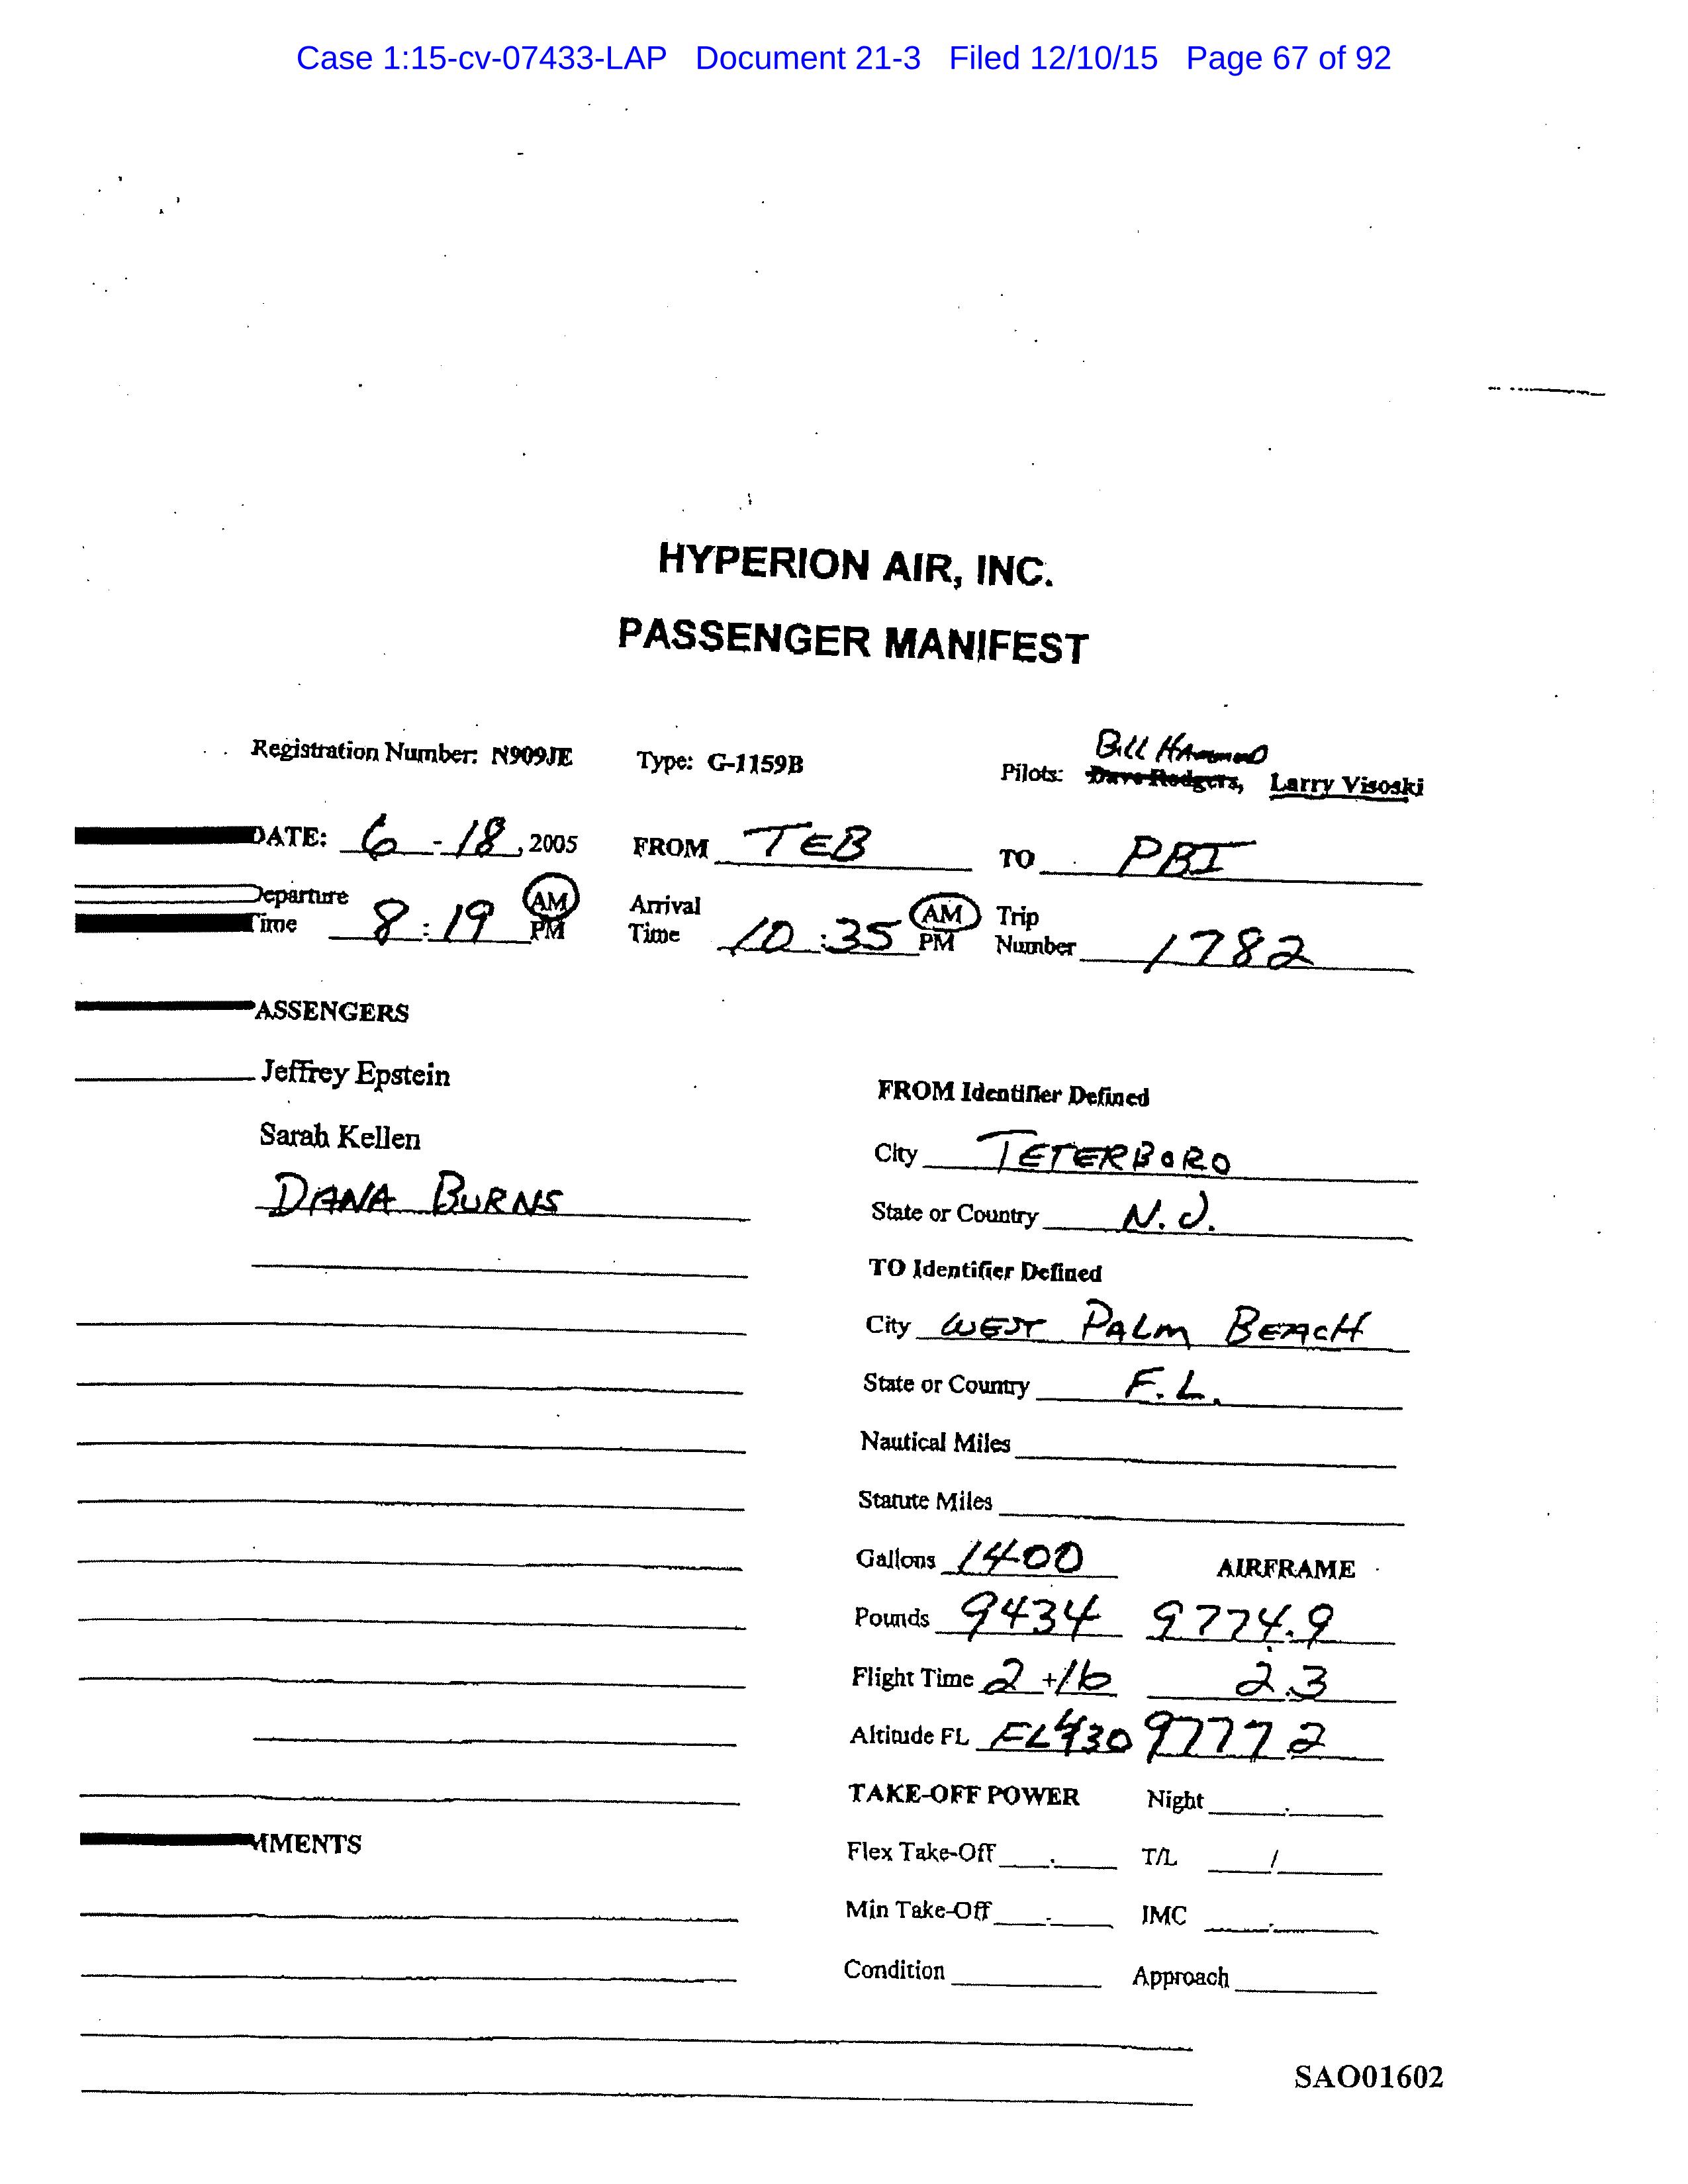 Case 1:15-cv-07433-LAP Document 21-3 Filed 12/10/15 Page 67 of 92
HYPERION AIR, INC.
PASSENGER MANIFEST
Bill Hammond
Registration Number: N909JE Type: G-1159B Pilots: Dave Rodgers, Larry Visoski
DATE: 6 - 18, 2005 FROM TEB TO PBI
Departure Time 8:19 AM PM Arrival Time 10:35 AM PM Trip Number 1782
ASSENGERS
Jeffrey Epstein
FROM Identifier Defined
Sarah Kellen
City TETERBORO
DANA BURNS
State or Country N.J.
TO Identifier Defined
City WEST PALM BEACH
State or Country F.L.
Nautical Miles
Statute Miles
Gallons 1400 AIRFRAME
Pounds 9434 9774.9
Flight Time 2 +16 2.3
Altitude FL FL430 9777 2
TAKE-OFF POWER Night
MMENTS
Flex Take-Off . T/L /
Min Take-Off . IMC .
Condition Approach
SAO01602